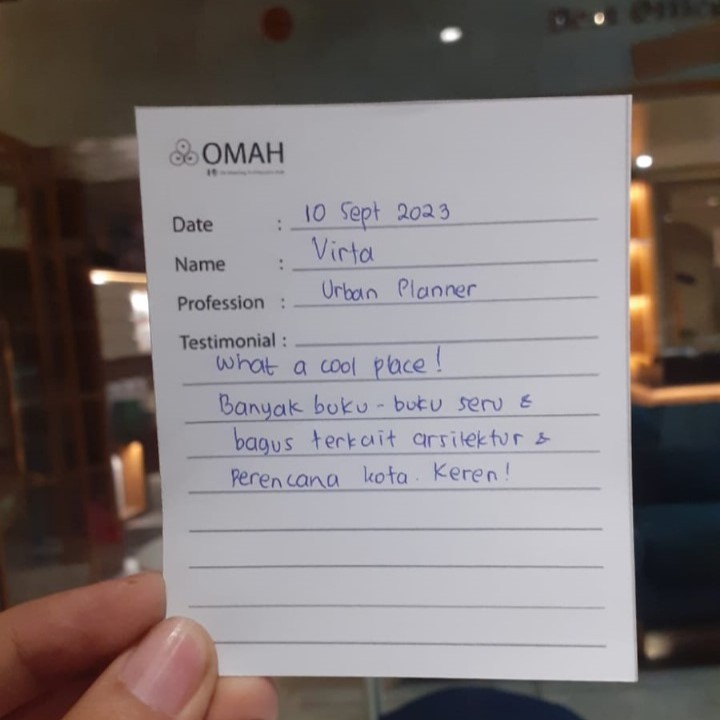 OMAH
Date : 10 Sept 2023
Name : Virta
Profession : Urban Planner
Testimonial :
What a cool place!
Banyak buku-buku seru &
bagus terkait arsitektur &
Perencana kota. Keren!